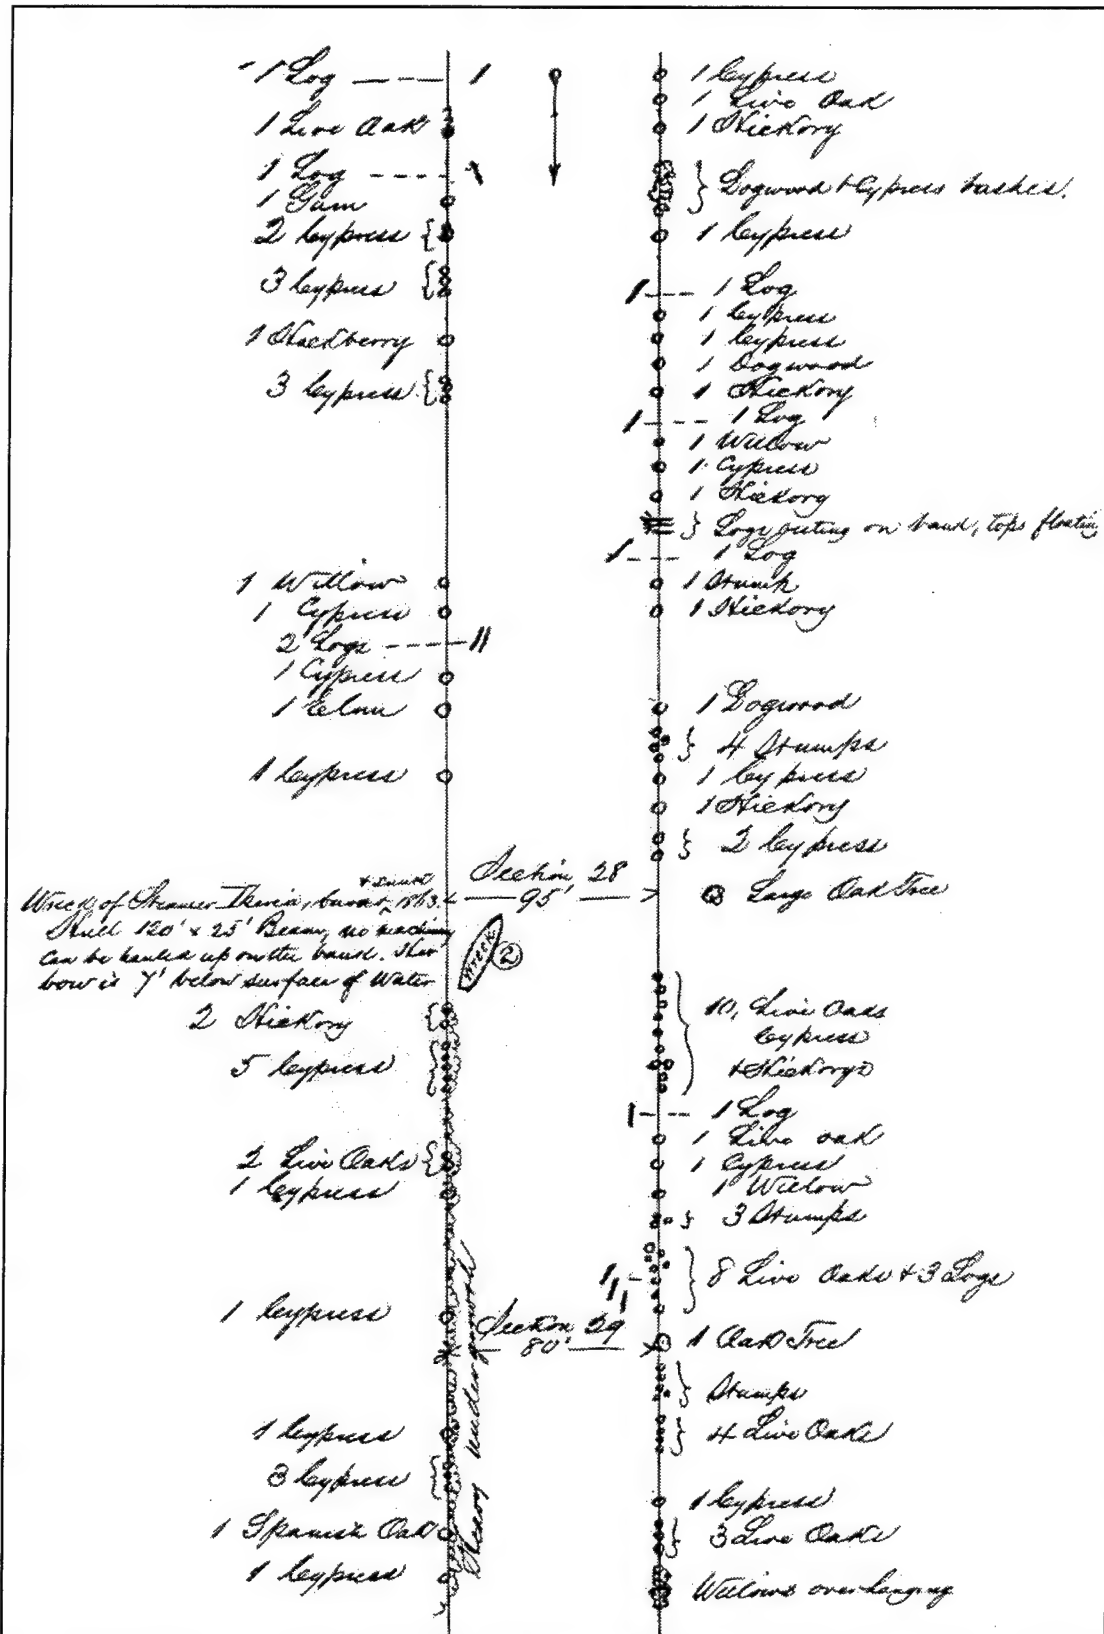 1 Log 1
1 Live Oak
1 Log
1 Gum
2 Cypress
3 Cypress
1 Hackberry
3 Cypress
1 Willow
1 Cypress
2 Logs
1 Cypress
1 Elm
1 Cypress
Wreck of Steamer Iberia, burnt + sunk 1863.
Hull 120' x 25' Beam, no machinery
can be hauled up on the bank. Her
bow is 7' below surface of Water
Wreck 2
2 Hickory
5 Cypress
2 Live Oaks
1 Cypress
1 Cypress
1 Cypress
3 Cypress
1 Spanish Oak
1 Cypress
Heavy undergrowth
Section 28
95'
Section 29
80'
1 Cypress
1 Live Oak
1 Hickory
Dogwood + Cypress bushes.
1 Cypress
1 Log
1 Cypress
1 Cypress
1 Dogwood
1 Hickory
1 Log
1 Willow
1 Cypress
1 Hickory
Logs on bank, tops floating
1 Log
1 Stump
1 Hickory
1 Dogwood
4 Stumps
1 Cypress
1 Hickory
2 Cypress
Large Oak Tree
10, Live Oaks
Cypress
+ Hickorys
1 Log
1 Live oak
1 Cypress
1 Willow
3 Stumps
8 Live Oaks + 3 Logs
1 Oak Tree
Stumps
4 Live Oaks
1 Cypress
3 Live Oaks
Willows overhanging